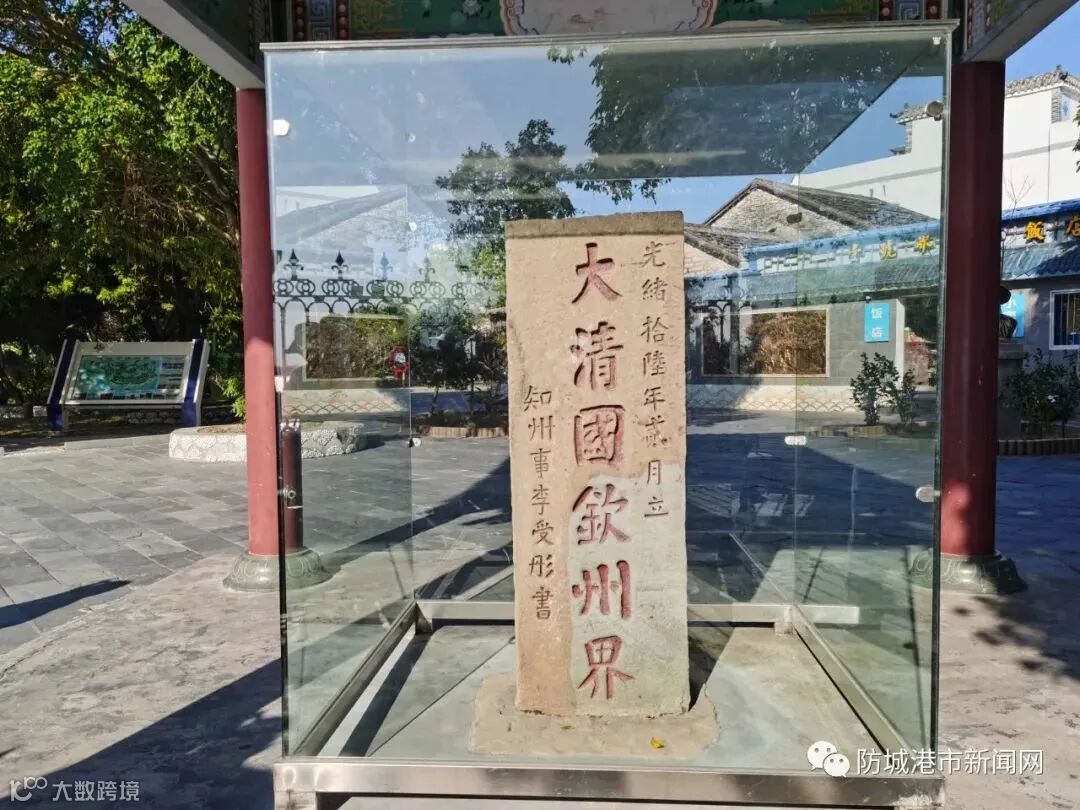 光緒拾陸年貳月立
大清國欽州界
知州事李受彤書
飯店
饭店
防城港市新闻网
大数跨境